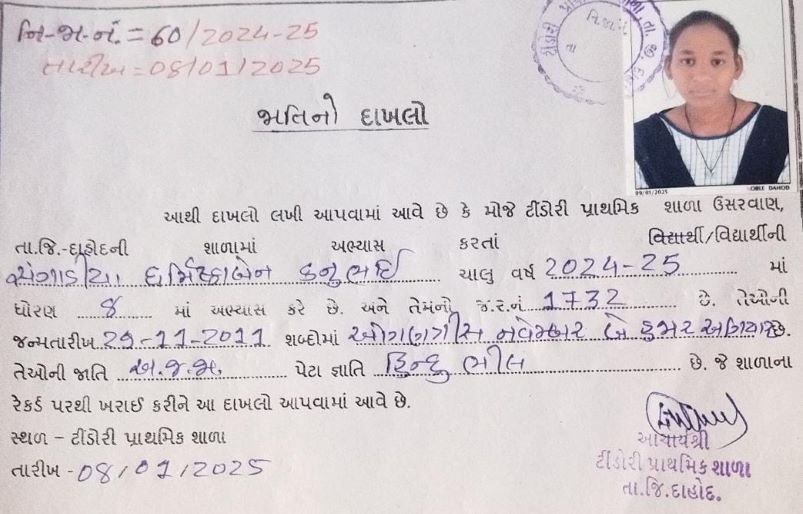 નિ-જા.નં. = 60/2024-25
તારીખ = 08/01/2025
જાતિનો દાખલો
09/01/2025
આથી દાખલો લખી આપવામાં આવે છે કે મોજે ટીંડોરી પ્રાથમિક શાળા ઉસરવાણ,
તા.જિ.-દાહોદની શાળામાં અભ્યાસ કરતાં વિદ્યાર્થી/વિદ્યાર્થીની
સંગાડીયા ધર્મિષ્ઠાબેન કનુભાઈ ચાલુ વર્ષ 2024-25 માં
ધોરણ ૪ માં અભ્યાસ કરે છે. અને તેમનો જ.ર.નં 1732 છે. તેઓની
જન્મતારીખ 29-11-2011 શબ્દોમાં ઓગણત્રીસ નવેમ્બર બે હજાર અગિયાર છે.
તેઓની જાતિ અ.જ.જા. પેટા જ્ઞાતિ હિન્દુ ભીલ છે. જે શાળાના
રેકર્ડ પરથી ખરાઈ કરીને આ દાખલો આપવામાં આવે છે.
સ્થળ – ટીંડોરી પ્રાથમિક શાળા
તારીખ - 08/01/2025
આચાર્યશ્રી
ટીંડોરી પ્રાથમિક શાળા
તા.જિ.દાહોદ.